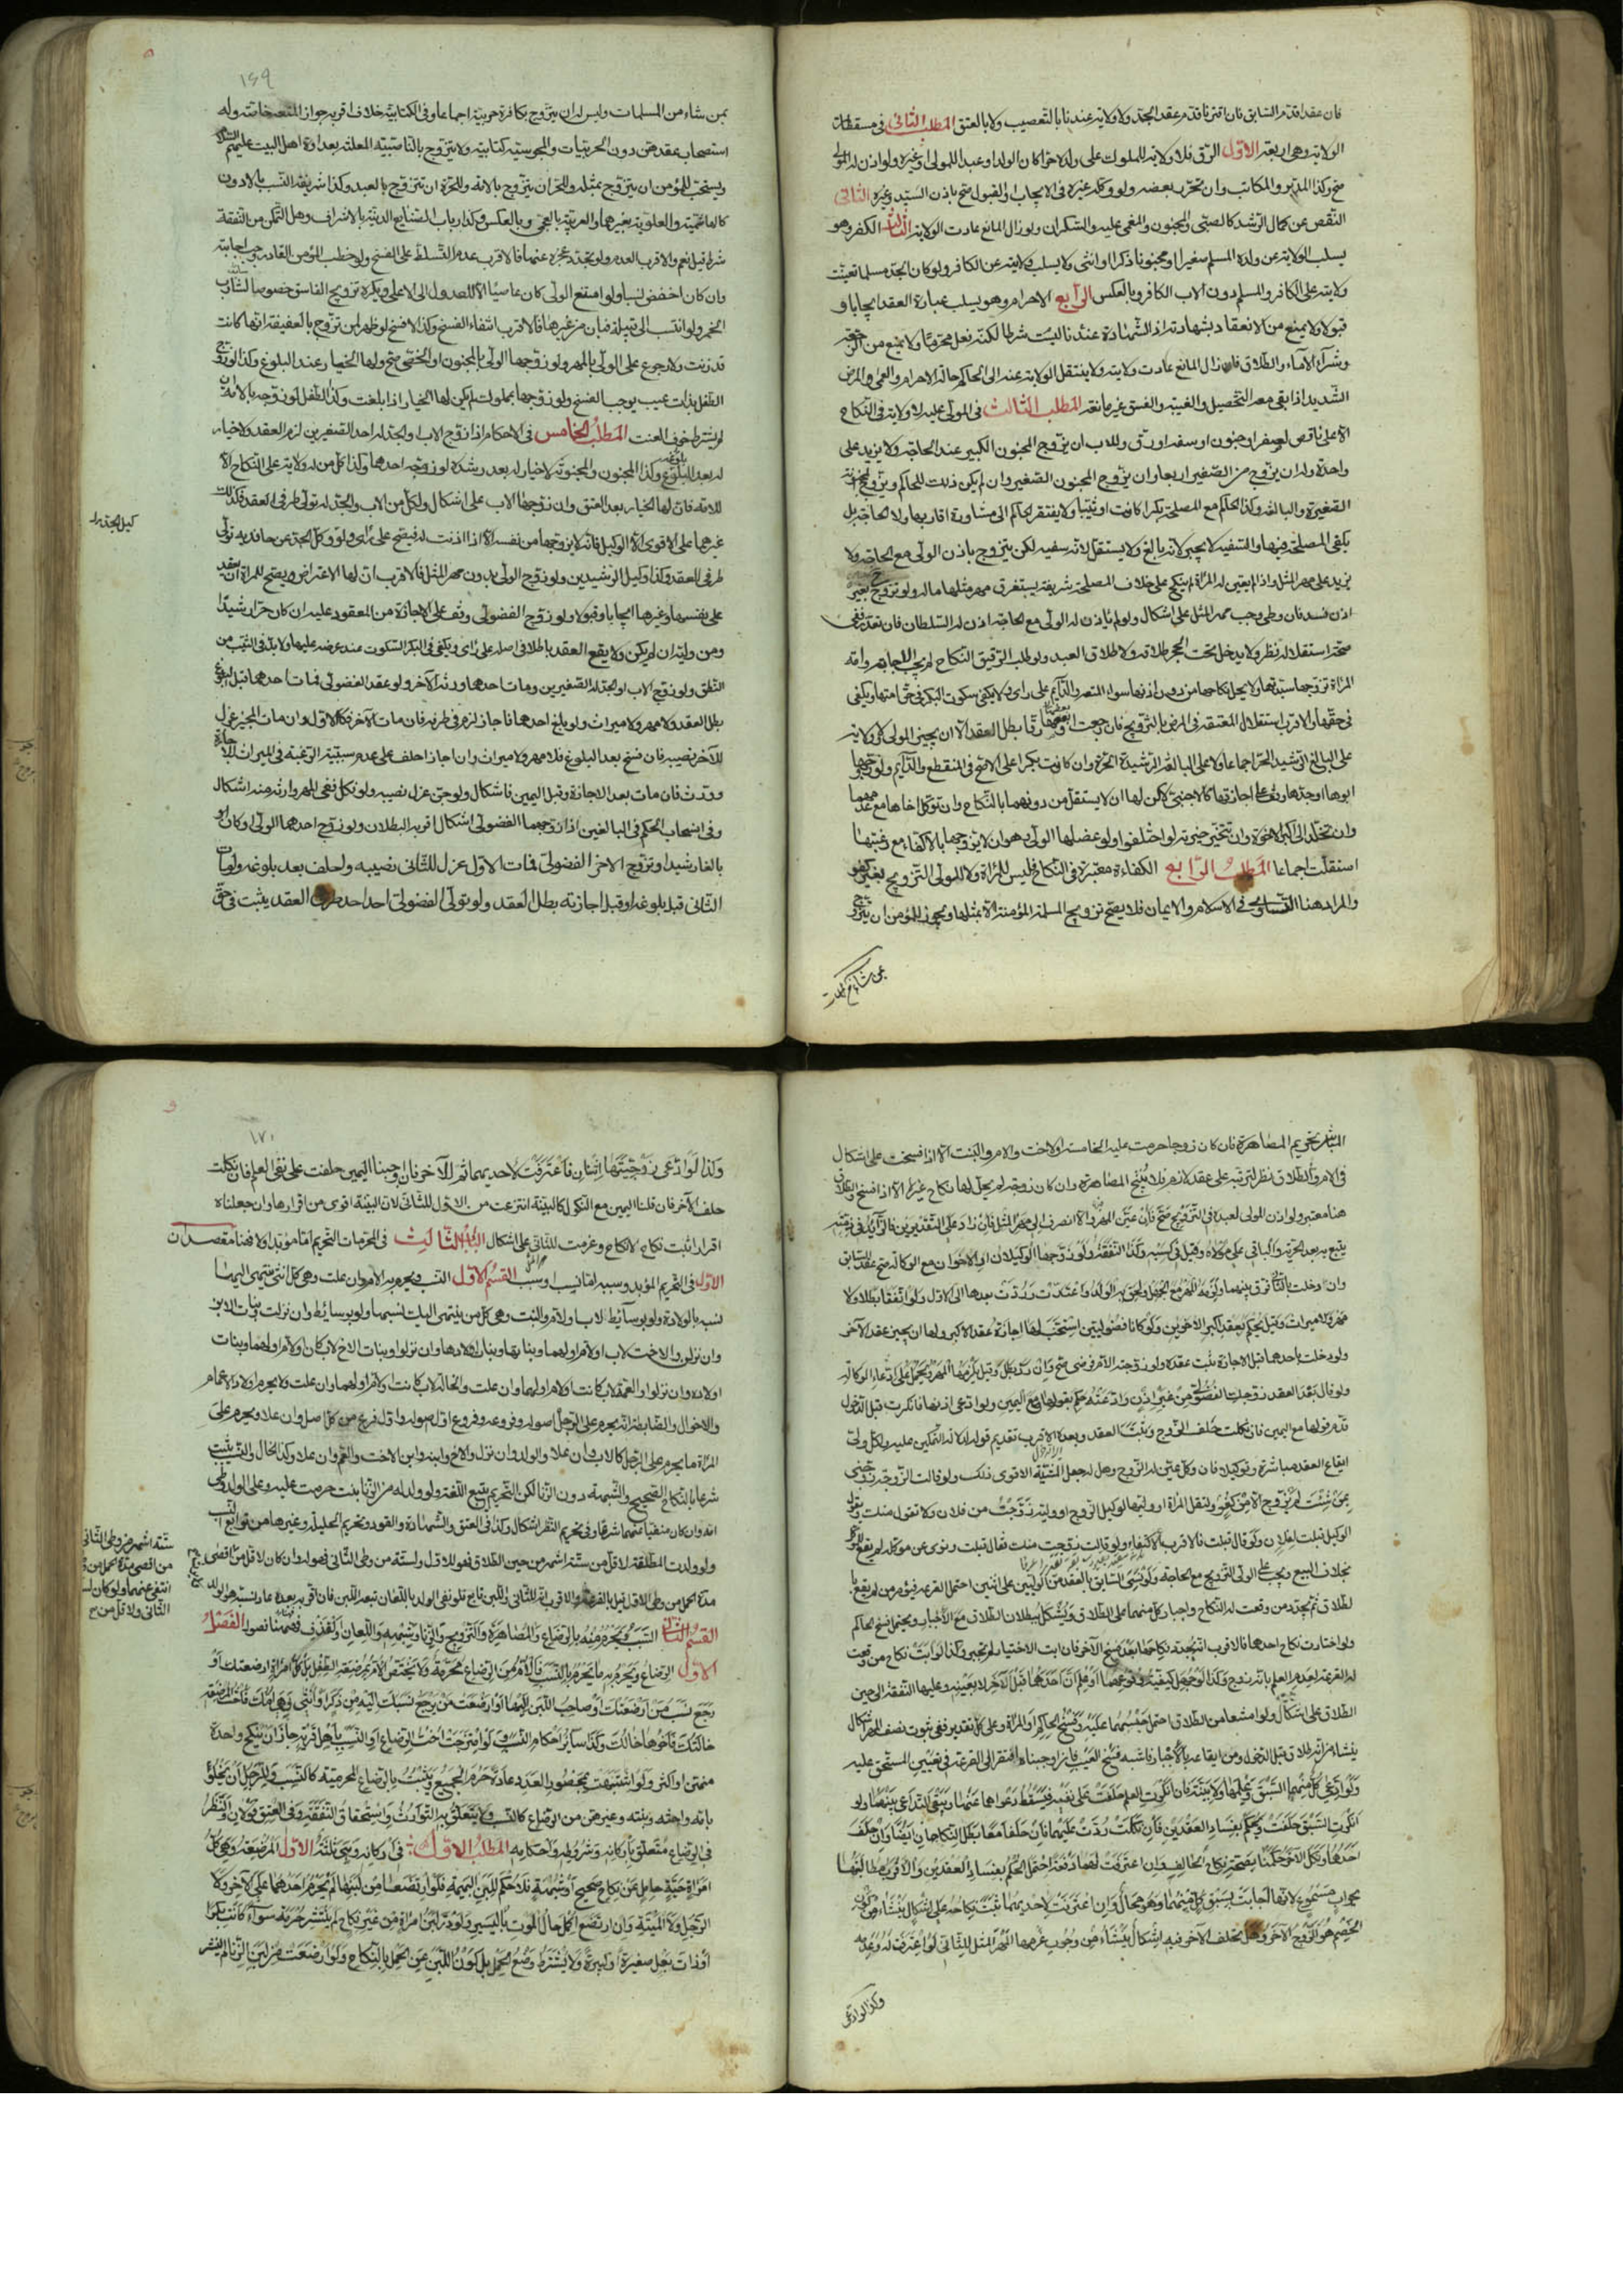 فان عقدا قدم السابق فان اقترنا قدم عقد الجد ولا ولاية عندنا بالتعصيب ولا بالعتق المطلب الثاني في مسقطات
الولاية وهي اربعة الاول الرق فلا ولاية لمملوك على ولده حرا كان الولد او عبدا للمولى او غيره ولو اذن له المولى
صح وكذا المدبر والمكاتب وان تحرر بعضه ولو وكله غيره في الايجاب او القبول صح باذن السيد وغيره الثاني
النقص عن كمال الرشد كالصبي والمجنون والمغمى عليه والسكران ولو زال المانع عادت الولاية الثالث الكفر وهو
يسلب الولاية عن ولده المسلم صغيرا او مجنونا ذكرا او انثى ولا يسلب ولايته عن الكافر ولو كان الجد مسلما تعينت
ولايته على الكافر والمسلم دون الاب الكافر وبالعكس الرابع الاحرام وهو يسلب عبارة العقد ايجابا و
قبولا ولا يمنع من الانعقاد بشهادته اذ الشهادة عندنا ليست شرطا لكنه فعل محرما ولا يمنع من الرجعة
وشراء الاماء والطلاق فان زال المانع عادت ولايته ولا ينتقل الولاية عنه الى الحاكم حالة الاحرام والعمى والمرض
الشديد اذا بقي معه التحصيل والغيبة والفسق غير مانعة المطلب الثالث في المولى عليه لا ولاية في النكاح
الا على ناقص لصغر او جنون او سفه او رق وللاب ان يزوج المجنون الكبير عند الحاجة ولا يزيد على
واحدة وله ان يزوج من الصغير اربعا وان يزوج المجنون الصغير وان لم يكن ذلك للحاكم ويزوج المجنونة
الصغيرة والبالغة وكذا الحاكم مع المصلحة بكرا كانت او ثيبا ولا يفتقر الحاكم الى مشاورة اقاربها ولا الحاجة بل
يكفي المصلحة فيها والسفيه لا يجبر لانه بالغ ولا يستقل لانه سفيه لكن يتزوج باذن الولي مع الحاجة ولا
يزيد على مهر المثل واذا لم يعين له المراة لم ينكح على خلاف المصلحة شريفة يستغرق مهر مثلها ماله ولو تزوج بغير
اذن فسد فان وطى وجب مهر المثل على اشكال ولو لم ياذن له الولي مع الحاجة اذن له السلطان فان تعذر ففي
صحة استقلاله نظر ولا يدخل تحت الحجر طلاقه ولا طلاق العبد ولو طلب الرقيق النكاح لم يجب الاجابة وامة
المراة تزوجها سيدتها ولا يحل نكاحها من دون اذنها سواء المتعة والدائم على راى ولا يكفي سكوت البكر في حق امتها ويكفي
في حقها والاقرب استقلال المعتقة في المرض بالتزويج فان رجعت او بعضها رقا بطل العقد الا ان يجيز المولى ولا ولاية
على البالغ الرشيد الحر اجماعا ولا على البالغة الرشيدة الحرة وان كانت بكرا على الاصح في المنقطع والدائم ولو زوجها
ابوها او جدها وقف على اجازتها كالاجنبي لكن لها ان لا يستقل من دونهما بالنكاح وان توكل اخاها مع عدمهما
وان تخلد الى اكبر الاخوة وان تتخير خيرته لو اختلفوا ولو عضلها الولي وهو ان لا يزوجها بالاكفاء مع رغبتها
استقلت اجماعا المطلب الرابع الكفاءة معتبرة في النكاح فليس للمراة ولا للولي التزويج بغير كفو
والمراد هنا التساوي في الاسلام والايمان فلا يصح تزويج المسلمة المؤمنة الا بمثلها ويجوز للمؤمن ان يتزوج
بمن شاء من المسلمات
۱۶۹
بمن شاء من المسلمات وليس له ان يتزوج بكافرة حربية اجماعا وفي الكتابية خلاف اقربه جواز المتعة خاصة وله
استصحاب عقدهن دون الحربيات والمجوسية كتابية ولا يتزوج بالناصبية المعلنة بعداوة اهل البيت عليهم السلام
ويستحب للمؤمن ان يتزوج بمثله وللحر ان يتزوج بالامة وللحرة ان تتزوج بالعبد وكذا شريفة النسب بالادون
كالهاشمية والعلوية بغيرهما والعربية بالعجمي وبالعكس وكذا ارباب الصنايع الدنية بالاشراف وهل التمكن من النفقة
شرط قيل نعم والاقرب العدم ولو تجدد عجزه عنها فالاقرب عدم التسلط على الفسخ ولو خطب المؤمن القادر وجب اجابته
وان كان اخفض نسبا ولو امتنع الولي كان عاصيا الا للعدول الى الاعلى ويكره تزويج الفاسق خصوصا شارب
الخمر ولو انتسب الى قبيلة فبان من غيرها فالاقرب انتفاء الفسخ وكذا لا فسخ لو ظهر لمن تزوج بالعفيفة انها كانت
قد زنت ولا رجوع على الولي بالمهر ولو زوجها الولي بالمجنون او الخصي صح ولها الخيار عند البلوغ وكذا لو زوج
الطفل بذات عيب يوجب الفسخ ولو زوجها بمملوك لم يكن لها الخيار اذا بلغت وكذا الطفل لو زوجه بالامة ان
لم يشترط خوف العنت المطلب الخامس في الاحكام اذا زوج الاب او الجد له احد الصغيرين لزم العقد ولا خيار
له بعد البلوغ وكذا المجنون والمجنونة لا خيار له بعد رشده لو زوجه احدهما وكذا كل من له ولاية على النكاح الا
للامة فان لها الخيار بعد العتق وان زوجها الاب على اشكال ولكل من الاب والجد له تولي طرفي العقد وكذلك
غيرهما على الاقوى الا الوكيل فانه لا يزوجها من نفسه الا اذا اذنت له فيصح على راى ولو وكل الجد عن حافديه تولي
كيل الجد
طرفي العقد وكذا وكيل الرشيدين ولو زوج الولي بدون مهر المثل فالاقرب ان لها الاعتراض ويصح للمراة ان تعقد
على نفسها وغيرها ايجابا وقبولا ولو زوج الفضولي وقف على الاجازة من المعقود عليه ان كان حرا رشيدا
ومن وليه ان لم يكن ولا يقع العقد باطلا في اصله على راى ويكفي في البكر السكوت عند عرضه عليها ولا بد في الثيب من
النطق ولو زوج الاب او الجد له الصغيرين ومات احدهما ورثه الآخر ولو عقد الفضولي فمات احدهما قبل البلوغ
بطل العقد ولا مهر ولا ميراث ولو بلغ احدهما فاجاز لزم في طرفه فان مات الآخر فكالاول وان مات المجيز عزل
للآخر نصيبه فان فسخ بعد البلوغ فلا مهر ولا ميراث وان اجاز احلف على عدم سببية الرغبة في الميراث للاجازة
وورث فان مات بعد الاجازة وقبل اليمين فاشكال ولو جن عزل نصيبه ولو نكل ففي المهر وارثه منه اشكال
وفي انسحاب الحكم في البالغين اذا زوجهما الفضولي اشكال اقربه البطلان ولو زوج احدهما الولي وكان او
بالغا رشيدا وتزوج الاخر الفضولي فمات الاول عزل للثاني نصيبه واحلف بعد بلوغه ولو مات
الثاني قبل بلوغه او قبل اجازته بطل العقد ولو تولى الفضولي احد طرفي العقد يثبت في حق
المباشر تحريم المصاهرة فان كان زوجا حرمت عليه الخامسة والاخت والام والبنت الا اذا فسخت على اشكال
في الام وفي الطلاق نظر لترتبه على عقد لازم فلا يبيح المصاهرة وان كان زوجة لم يحل لها نكاح غيره الا اذا فسخ والطلاق
هنا معتبر ولو اذن المولى لعبده في التزويج صح فان عين المهر والا انصرف الى مهر المثل فان زاد على التقديرين فالزائد في ذمته
يتبع به بعد الحرية والباقي على مولاه وقيل في كسبه وكذا النفقة ولو زوجها الوكيلان او الاخوان مع الوكالة صح عقد السابق
وان دخلت بالثاني فرق بينهما ولزمه المهر مع الجهل ولحق به الولد واعتدت وردت بعدها الى الاول ولو اتفقا بطلا ولا
مهر ولا ميراث وقيل يحكم بعقد اكبر الاخوين ولو كانا فضوليين استحب لها اجازة عقد الاكبر ولها ان يجيز عقد الآخر
ولو دخلت باحدهما قبل الاجازة ثبت عقده ولو زوجته الام فرضي صح وان رد بطل وقيل يلزمها المهر ويحمل على ادعاء الوكالة
ولو قال بعد العقد زوجك الفضولي من غير اذن وادعته حكم بقولها مع اليمين ولو ادعى اذنها فانكرت قبل الدخول
قدم قولها مع اليمين فان نكلت حلف الزوج وثبت العقد وبعده الاقرب تقديم قوله لدلالة التمكين عليه ولكل ولي
ايقاع العقد مباشرة وتوكيلا فان وكل عين له الزوج وهل له جعل المشية الاقوى ذلك ولو قالت الزوجة زوجني
ممن شئت لم يزوج الا من كفو وليقل المراة او وليها لوكيل الزوج او وليه زوجت من فلان ولا تقول منك ويقول
الوكيل قبلت لفلان ولو قال قبلت فالاقرب الاكتفاء ولو قالت زوجت منك فقال قبلت ونوى عن موكله لم يقع للموكل
بخلاف البيع ويجب على الولي التزويج مع الحاجة ولو نسي السابق بالعقد من الوليين على اثنين احتمل القرعة فيؤمر من لم يقع له
بالطلاق ثم يجدد من وقعت له النكاح واجبار كل منهما على الطلاق ويشكل ببطلان الطلاق مع الاجبار ويحتمل فسخ الحاكم
ولو اختارت نكاح احدهما فالاقرب انه يجدد نكاحها بعد فسخ الآخر فان ابت الاختيار لم تجبر وكذا لو ابت نكاح من وقعت
له القرعة لعدم العلم بانه زوج وكذا لو جهل كيفية وقوعهما او علم ان احدهما قبل الآخر لا بعينه وعليهما النفقة الى حين
الطلاق على اشكال ولو امتنعا من الطلاق احتمل حبسهما عليه وفسخ الحاكم او المراة وعلى كل تقدير ففي ثبوت نصف المهر اشكال
ينشا من انه طلاق قبل الدخول ومن ايقاعه بالاجبار فاشبه فسخ العيب فان اوجبناه افتقر الى القرعة في تعيين المستحق عليه
ولو ادعى كل منهما السبق وعلمها ولا بينة فان انكرت العلم حلفت على نفيه فيسقط دعواهما عنها ويبقى التداعي بينهما ولو
انكرت السبق حلفت ويحكم بفساد العقدين فان نكلت ردت عليهما فان حلفا معا بطل النكاحان ايضا وان حلف
احدهما ونكل الآخر حكمنا بصحة نكاح الحالف وان اعترفت لهما دفعة احتمل الحكم بفساد العقدين والاقرب مطالبتها
بجواب مسموع لانها اجابت بسبق كل منهما وهو محال وان اعترفت لاحدهما ثبت نكاحه على اشكال ينشا من كون
الخصم هو الزوج الآخر وهل تحلف الآخر فيه اشكال ينشا من وجوب غرمها المهر المثل للثاني لو اعترفت له وعدمه
وكذا لو ادعى
۱۷۰
وكذا لو ادعى زوجيتها اثنان فاعترفت لاحدهما ثم للآخر فان اوجبنا اليمين حلفت على نفي العلم فان نكلت
حلف الآخر فان قلنا اليمين مع النكول كالبينة انتزعت من الاول للثاني لان البينة اقوى من اقرارها وان جعلناه
اقرارا ثبت نكاح الاول وغرمت للثاني على اشكال الباب الثالث في المحرمات التحريم اما مؤبد او لا فهنا مقصدان
الاول في التحريم المؤبد وسببه اما نسب او سبب القسم الاول النسب ويحرم به الام وان علت وهي كل انثى ينتهي اليها
نسبه بالولادة ولو بوسائط لاب او لام والبنت وهي كل من ينتهي اليك نسبها ولو بوسائط وان نزلت وبنات الابن
وان نزلن والاخت لاب او لام او لهما وبناتها وبنات اولادها وان نزلوا وبنات الاخ لاب كان او لام او لهما وبنات
اولاده وان نزلوا والعمة لاب كانت او لام او لهما وان علت والخالة لاب كانت او لام او لهما وان علت ولا يحرم اولاد الاعمام
والاخوال والضابط انه يحرم على الرجل اصوله وفروعه وفروع اول اصوله واول فرع من كل اصل وان علا ويحرم على
المراة ما يحرم على الرجل كالاب وان علا والولد وان نزل والاخ وابنه وابن الاخت والعم وان علا وكذا الخال والنسب يثبت
شرعا بالنكاح الصحيح والشبهة دون الزنا لكن التحريم يتبع اللغة ولو ولد له من الزنا بنت حرمت عليه وعلى الولد وطى
امه وان كان منفيا عنهما شرعا وفي تحريم النظر اشكال وكذا في العتق والشهادة والقود وتحريم الحليلة وغيرها من توابع النسب
ولو ولدت المطلقة لاقل من ستة اشهر من حين الطلاق فهو للاول ولستة من وطى الثاني فهو له وان كان لاقل من اقصى
ستة اشهر من وطى الثاني
من اقصى مدة الحمل من
انتفى عنهما ولو كان
الثاني ولاقل من
مدة الحمل من وطى الاول قيل بالقرعة والاقرب انه للثاني واللبن تابع فلو نفى الولد باللعان تبعه اللبن فان اقر به بعده عاد نسبه
القسم الثاني السبب ويحرم منه بالرضاع والمصاهرة والتزويج والزنا وشبهه واللعان والقذف فهنا فصول الفصل
الاول الرضاع ويحرم به ما يحرم بالنسب فالام من الرضاع محرمة ولا يختص الام بمرضعة الطفل بل كل امراة ارضعتك او
رجع نسب من ارضعتك او صاحب اللبن اليها او ارضعت من يرجع نسبك اليه من ذكر او انثى فهي امك فاخت المرضعة
خالتك واخوها خالك وكذا سائر احكام النسب ولو امتزجت اخت الرضاع او النسب باهل قرية جاز ان ينكح واحدة
منهن او اكثر ولو اشتبهت بمحصور العدد عادة حرم الجميع ويثبت بالرضاع المحرمية كالنسب وللرجل ان يخلو
بامه واخته وبنته وغيرهن من الرضاع كالنسب ولا يتعلق به التوارث واستحقاق النفقة وفي العتق قولان والنظر
في الرضاع متعلق باركانه وشروطه واحكامه المطلب الاول في اركانه وهي ثلثة الاول المرضعة وهي كل
امراة حية حامل عن نكاح صحيح او شبهة فلا حكم للبن البهيمة فلو ارتضعا من لبنها لم يحرم احدهما على الآخر ولا
الرجل ولا الميتة وان ارتضع اكمل حال الموت باليسير ولو در لبن امراة من غير نكاح لم ينشر حرمة سواء كانت بكرا
او ذات بعل صغيرة او كبيرة ولا يشترط وضع الحمل بل كون اللبن عن الحمل بالنكاح ولو ارضعت من لبن الزنا لم ينشر